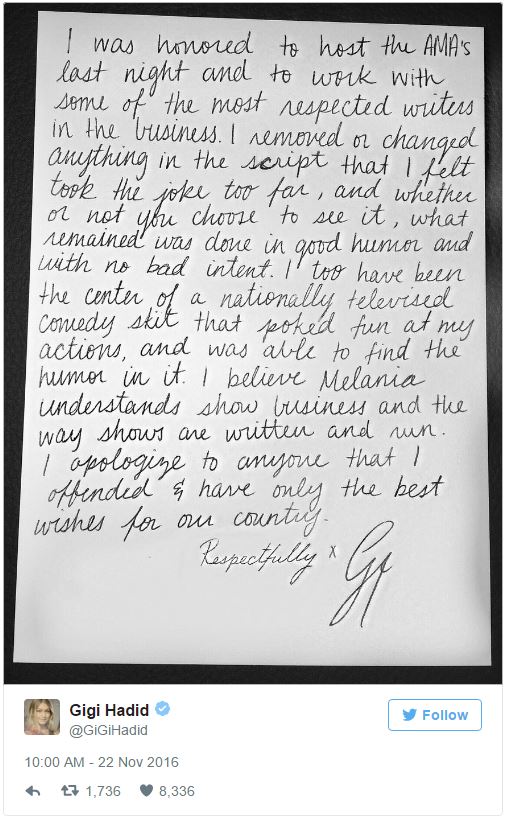 I was honored to host the AMA's
last night and to work with
some of the most respected writers
in the business. I removed or changed
anything in the script that I felt
took the joke too far, and whether
or not you choose to see it, what
remained was done in good humor and
with no bad intent. I too have been
the center of a nationally televised
comedy skit that poked fun at my
actions, and was able to find the
humor in it. I believe Melania
understands show business and the
way shows are written and run.
I apologize to anyone that I
offended & have only the best
wishes for our country.
Respectfully x Gi
Gigi Hadid
@GiGiHadid
Follow
10:00 AM - 22 Nov 2016
1,736 8,336